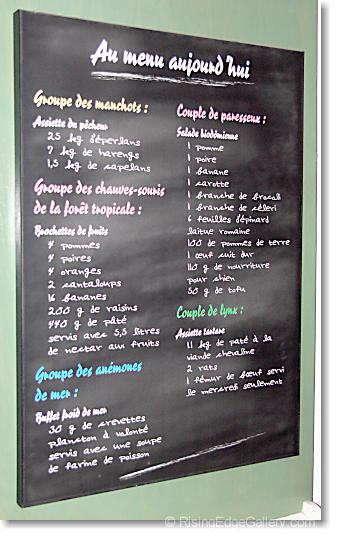 Au menu aujourd'hui
Groupe des manchots :
Assiette du pêcheur
25 kg d'éperlans
7 kg de harengs
1,5 kg de capelans
Groupe des chauves-souris
de la forêt tropicale :
Brochettes de fruits
4 pommes
4 poires
4 oranges
2 cantaloups
16 bananes
200 g de raisins
440 g de pâté
servis avec 5,5 litres
de nectar aux fruits
Groupe des anémones
de mer :
Buffet froid de mer
30 g de crevettes
plancton à volonté
servis avec une soupe
de farine de poisson
Couple de paresseux :
Salade biodômienne
1 pomme
1 poire
1 banane
1 carotte
1 branche de brocoli
1 branche de céleri
6 feuilles d'épinard
laitue romaine
100 g de pommes de terre
1 œuf cuit dur
110 g de nourriture
pour chien
50 g de tofu
Couple de lynx :
Assiette tartare
11 kg de pâté à la
viande chevaline
2 rats
1 fémur de bœuf servi
le mercredi seulement
© RisingEdgeGallery.com